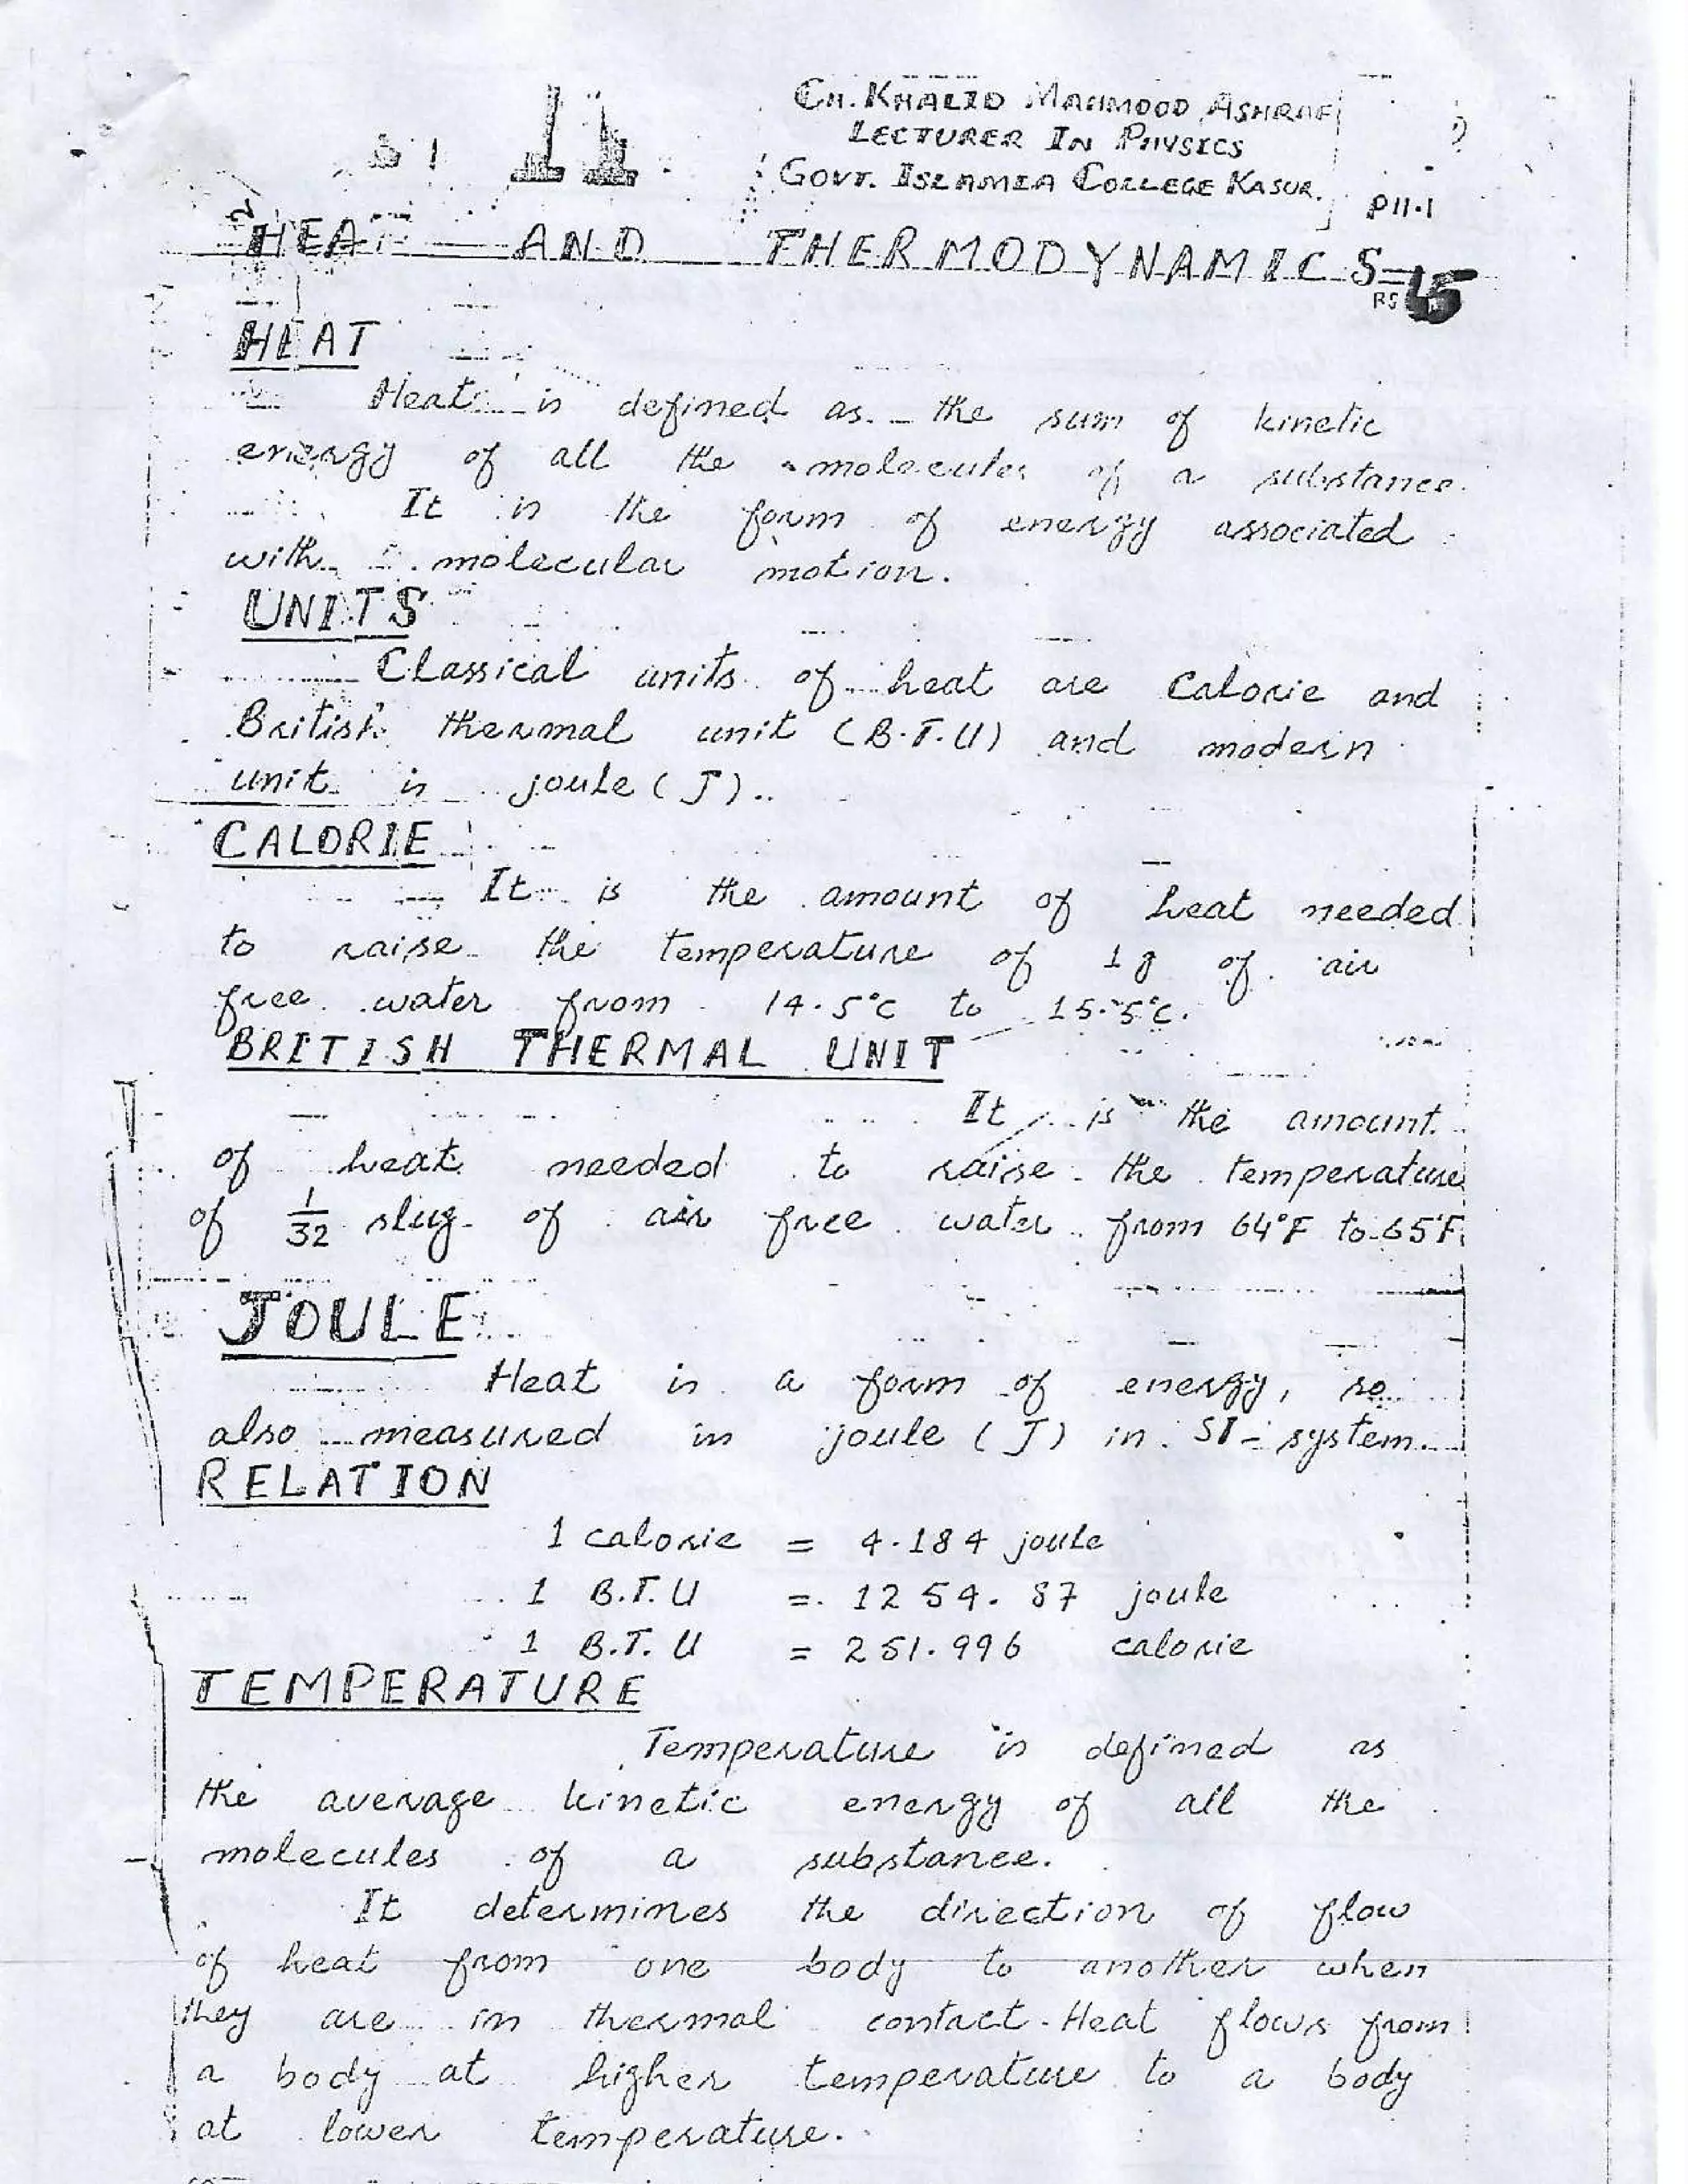 11
CH. KHALID MAHMOOD ASHRAF
LECTURER IN PHYSICS
GOVT. ISLAMIA COLLEGE KASUR.
P11.1
HEAT AND THERMODYNAMICS
RS 15
HEAT
Heat is defined as the sum of kinetic
energy of all the molecules of a substance.
It is the form of energy associated
with molecular motion.
UNITS
Classical units of heat are Calorie and
British thermal unit (B.T.U) and modern
unit is joule (J).
CALORIE
It is the amount of heat needed
to raise the temperature of 1g of air
free water from 14.5°C to 15.5°C.
BRITISH THERMAL UNIT
It is the amount
of heat needed to raise the temperature
of 1/32 slug of air free water from 64°F to 65°F
JOULE
Heat is a form of energy, so
also measured in joule (J) in SI-system.
RELATION
1 calorie = 4.184 joule
1 B.T.U = 1254.87 joule
1 B.T.U = 251.996 calorie
TEMPERATURE
Temperature is defined as
the average kinetic energy of all the
molecules of a substance.
It determines the direction of flow
of heat from one body to another when
they are in thermal contact. Heat flows from
a body at higher temperature to a body
at lower temperature.